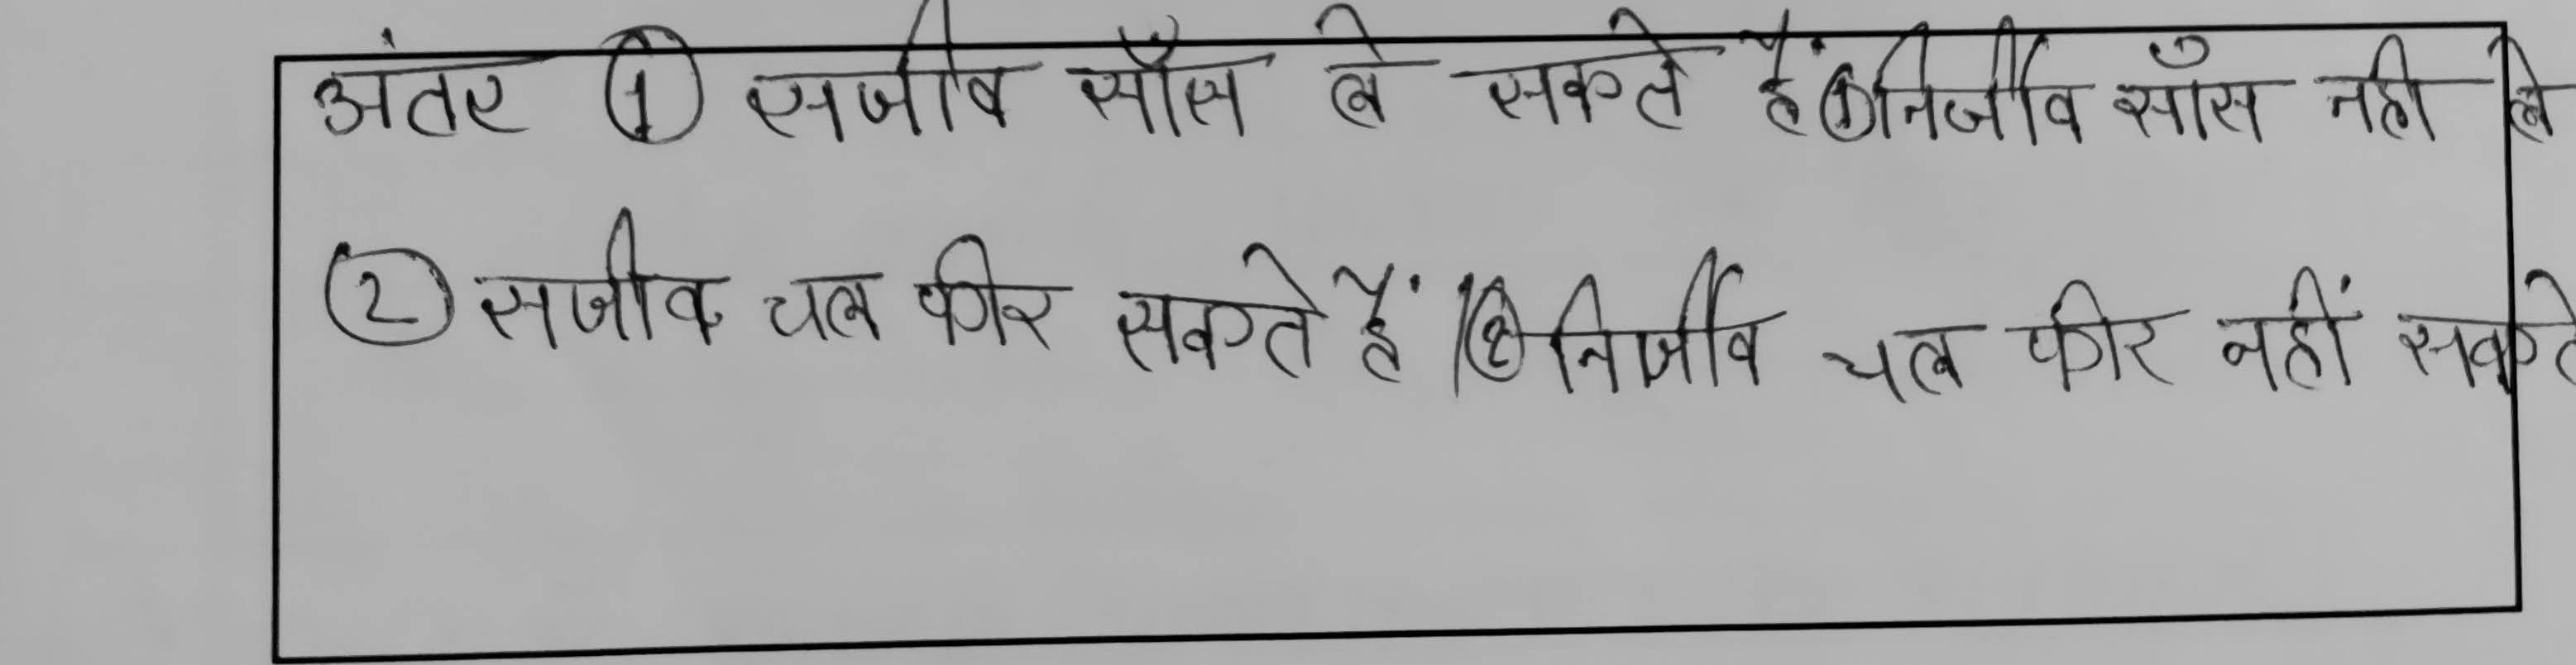 अंतर ① सजीव साँस ले सकते हैं ① निर्जीव साँस नही ले
② सजीव चल फीर सकते हैं । ② निर्जीव चल फीर नहीं सकते